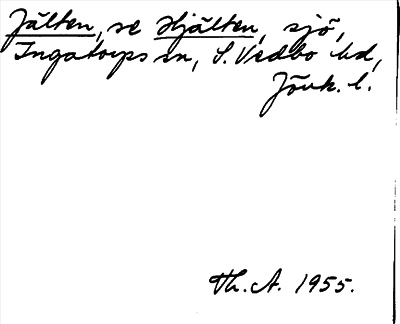 Jälten, se Hjälten, sjö,
Ingatorps sn, S. Vedbo hd,
Jönk. l.
Th. A. 1955.